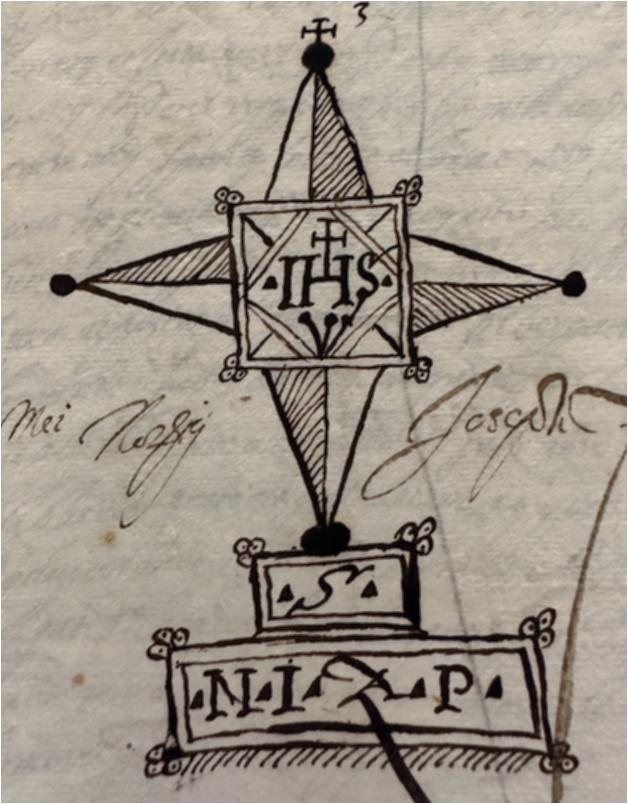 3
IHS
Mei Joseph
S
N I P